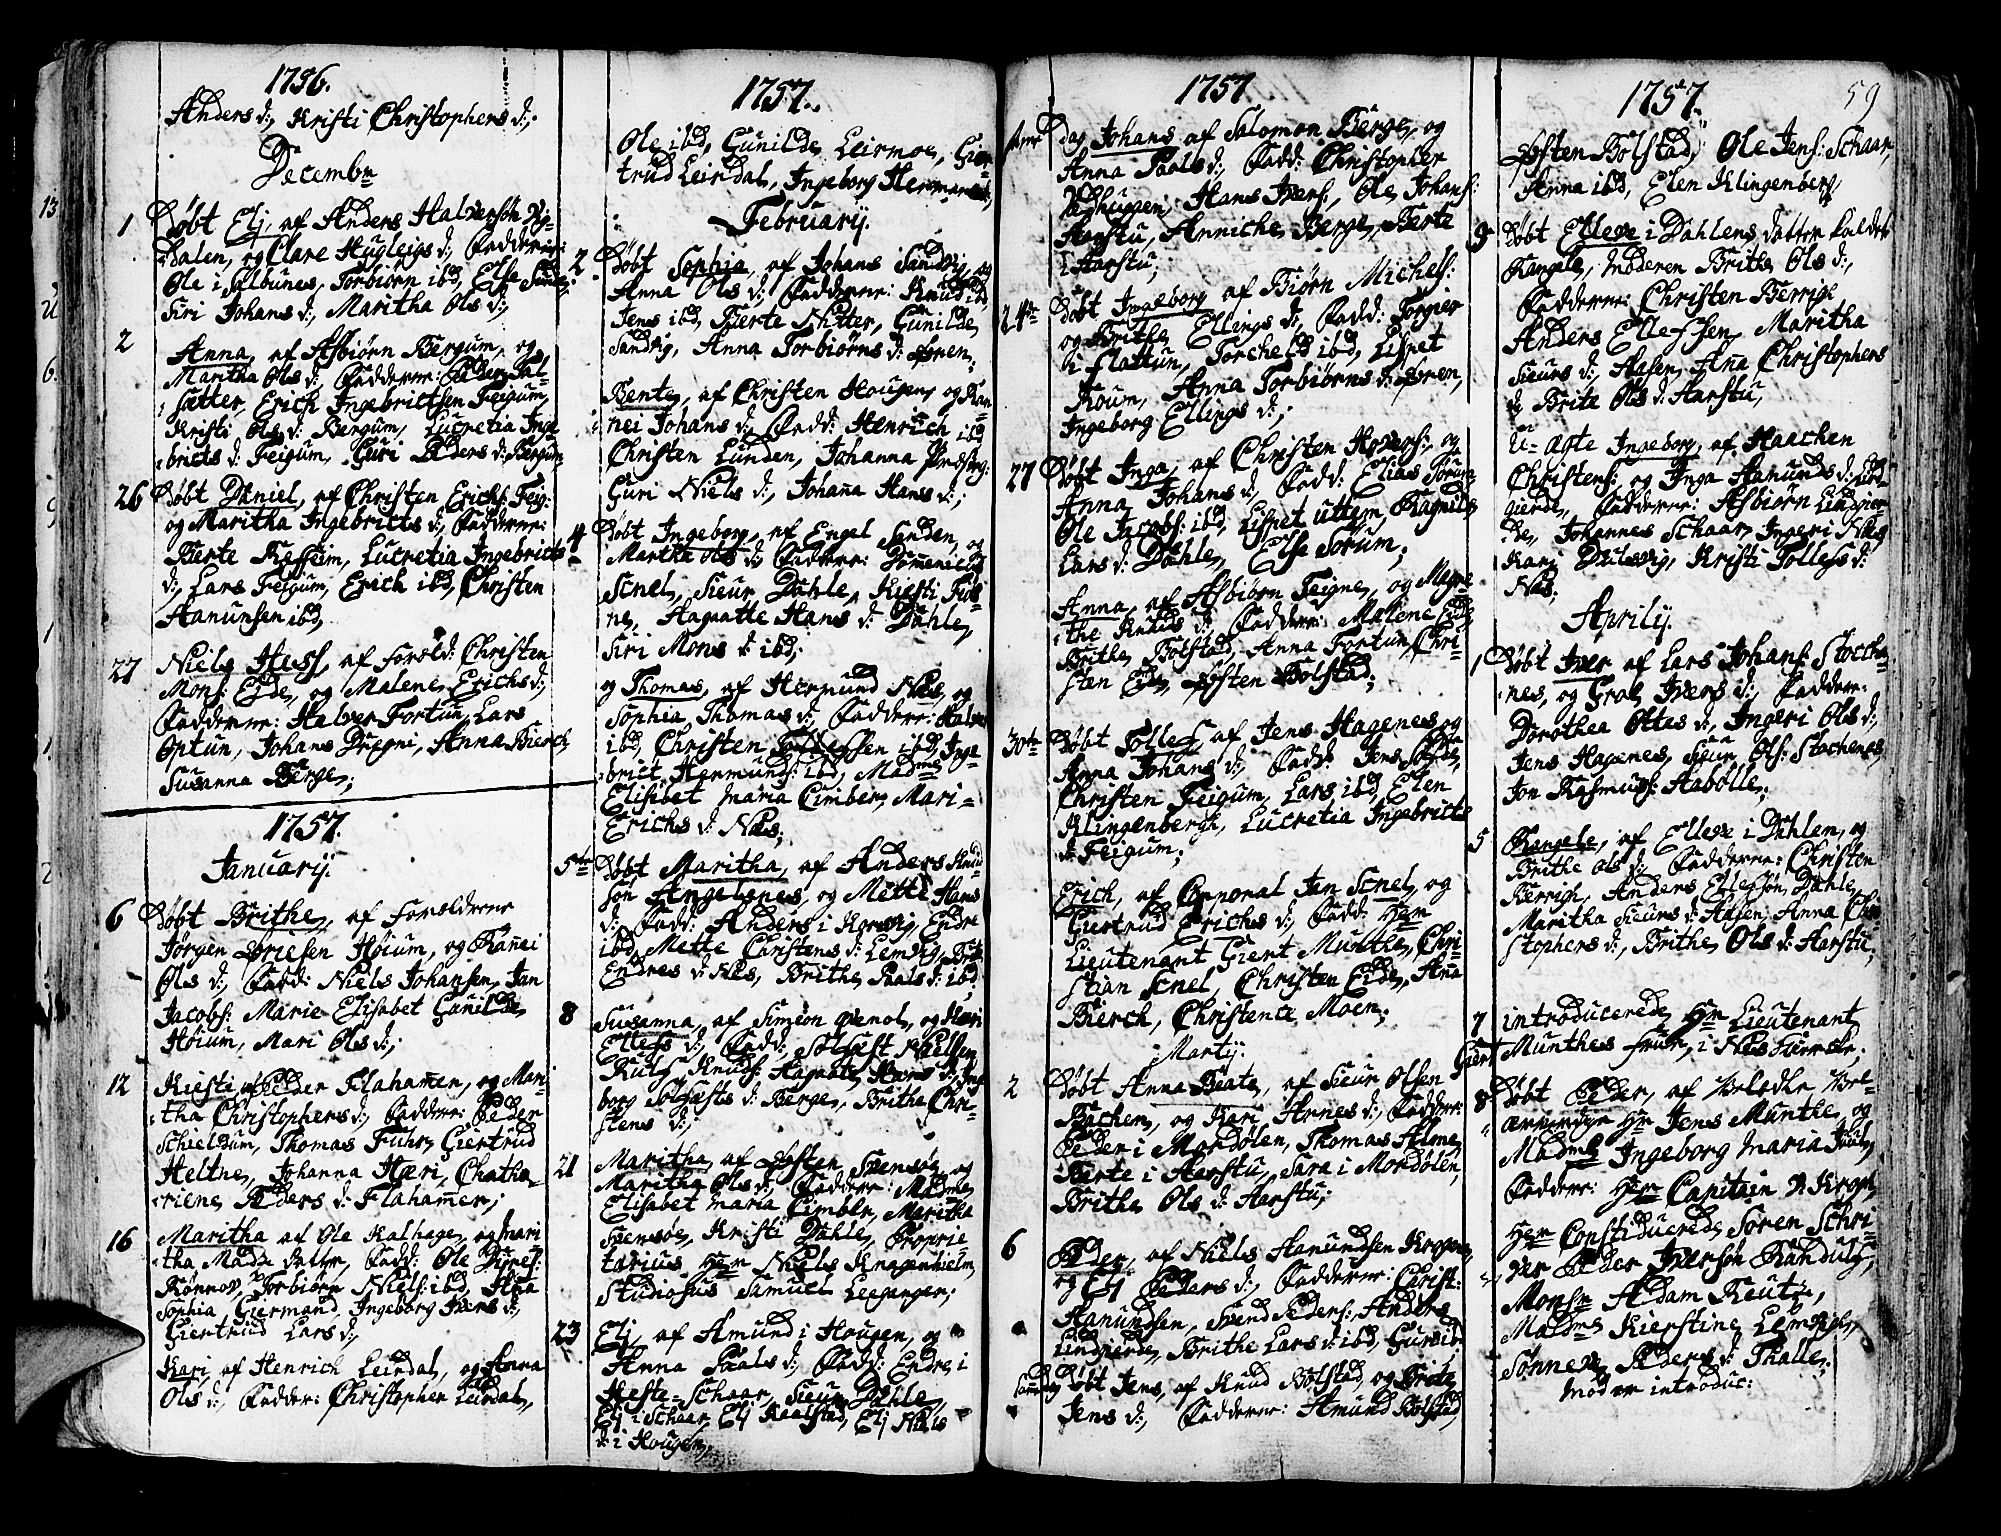 1756.
Anders d:, Kristi Christophers d:,
Decembr
1 Døbt Elj, af Anders Halversøn
dalen, og Clare Hugleigs d:, Fadderne:
Ole i Talbunes, Torbiørn ibd, Else
Siri Johans d:, Maritha Ols d:,
2 Anna, af Asbiørn Bergum, og
Maritha Ols d:, Fadderne:
sætter, Erich Ingebrictsen Feigum,
Kristi Ols d: Bergum, Lucretia Inge
bricts d: Feigum, Guri Peders d: Bergum
26 Døbt Daniel, af Christen Erichs: Feig:
og Maritha Ingebricts d:, Fadderne:
Bierte, Lucretia Ingebricts
d:, Lars Feigum, Erich ibd, Christen
Aamunsen ibd,
27 Niels Hess, af Foræld: Christen
Mons: Eide, og Malene Erichs d:,
Fadderne: Halver Fortun, Lars
Optun, Johans, Anna Bierch
Susanna Berge;
1757.
Januarij.
6 Døbt Brithe, af Forældrene
Jørgen Høium, og Rannei
Ols d:, Fadd: Niels Johansen, Jan
Jacobs: Marie Elisabet Gunilde
Høium, Mari Ols d:,
12 Kiesti af Peder Flahamer, og Mari-
tha Christophers d:, Fadder: Peder
Schieldum, Thomas Fuhr, Giertrud
Heltne, Johanna Hæri, Chatha-
rine Peders d: Flahamer;
16 Maritha af Ole Kalhage, og Mari
tha Mads datter, Fadd: Ole
Torbiørn Niels: ibd, Anna
Sophia, Giermund, Ingeborg Ivers d:,
Giertrud Lars d:,
Kari af Henrich Leirdal, og Anna
Ols d:, Fadder: Christopher Leirdal,
1757.
Ole ibd, Gunilde Leirmoe, Gier-
trud Leirdal, Ingeborg
Februarij.
2 Døbt Sophia, af Johans Sandvig, og
Anna Ols d:, Fadderne: Knud ibd
Jens ibd, Bierte Nitter, Gunilde
Sandvig, Anna Torbiørns d: Øren,
Bente, af Christen Hougen, og Ran-
nei Johans d:, Fadd: Henrich ibd
Christen Lunden, Johanna
Guri Niels d:, Johana Hans d:;
4 Døbt Ingeborg, af Engel Sanden, og
Martha Ols d: Fadderne:
Scnel, Sieur Dahle, Kiesti
ne, Aagaatte Hans d: Dahle,
Siri Mons d: ibd;
og Thomas, af Hermund Næs, og
Sophia Thomas d:, Fadderne: Halver
ibd, Christen ibd, Inge-
brict Hermunds: ibd, Madme
Elisibet Maria Cimber, Mari-
Erichs d: Næs;
5te Døbt Maritha, af Anders Knud
søn Angelsnes, og Mette Hans
d:, Fadd: Anders i Korsvig, Endre
ibd, Mette Christens d: Lemvig,
Endres d: Næs, Brithe Paals d: ibd,
8 Susanna, af Simeon, og Kari
d:, Fadd: Solfast Nielsen
Knuds: Aagaate Hans d:
borg Solfasts d: Berge, Brithe Chri-
stens d:,
21 Maritha, af Østen Svensøe, og
Maritha Ols d:, Fadderne: Madme
Elisabet Maria Cimber, Maritha
Svensøe, Kristi Dahle, Proprie
tarius Herr Niels Knagenhielm,
Studiosus Samuel Leegangen;
23 Elj, af Amund i Hougen, og
Anna Paals d:, Fadd: Endre i
Heste-Schaar, Sieur Dahle,
Elj i Schaar, Elj Kaalstad, Elj Niels
d: i Hougen;
1757
dag, Johans af Salomon Berge, og
Anna Paals d:, Fadd: Christopher
Hans Ivers:, Ole Johans:
Aarstu, Anniche Berge, Bierte
i Aarstu;
24de Døbt Ingeborg af Biørn Michels:
og Brithe Ellings d:, Fadd: Torgier
i Flattun, Torcheld ibd, Lisbet
Roum, Anna Torbiørns d: Øren,
Ingeborg Ellings d:;
27 Døbt Inga, af Christen, og
Anna Johans d:, Fadd: Elias Sørum
Ole Jacobs: ibd, Lisbet uttem, Ragnilde
Lars d: Dahle, Else Sørum;
Anna, af Asbiørn Feigne, og Magre
the Knuds d: Fadderne: Malene Eide
Brithe Bolstad, Anna Fortun, Chri-
sten Eide, Østen Bolstad;
30te Døbt Tollef af Jens Hagenes og
Anna Johans d:, Fadd: Jens
Christen Feigum, Lars ibd, Elen
Klingenbergh, Lucretia Ingebricts
d: Feigum;
Erich, af Corporal Jan Scnel, og
Giertrud Erichs d:, Fadd: Herr
Lieutenant Giert Munthe, Chri-
stian Scnel, Christen Eide, Anna
Bierch, Christence Moen;
Martij:
2 Døbt Anna Beate, af Sieur Olsen
Bachen, og Kari Arnes d:, Fadder:
Peder i Mordølen, Thomas Alme
Bierte i Aarstu, Sara i Mordølen,
Brithe Ols d: Aarstu;
6 Peder, af Niels Aamundsen Krogen,
og Elj Peders d:, Fadderne: Christ:
Aamundsen, Svend Peders:, Anders
Lindgierde, Brithe Lars d: ibd, Gunild
Døbt Jens, af Knud Bolstad, og Brite
Jens d:, Fadderne: Amund Bolstad
1757. 59
Østen Bolstad, Ole Jens: Schaar,
Anna ibd, Elen Klingenberg,
9 Døbt Elleve i Dahlens datter kaldet
Rangele, Moderen Brithe Ols d:,
Fadderne: Christen Berrigh
Anders Ellefsen, Maritha
Sieurs d:, Aasen, Ana Christophers
d, Brite Ols d: Aarstu,
u-ægte Ingeborg, af Haachen
Christens: og Inga Aamunds d: Lind-
gierde, Fadderne: Asbiørn Lindgier-
de, Johannes Schaar, Ingeri Næs
Kari Dulsvig, Kristi Tollefs d:
Næs;
Aprilij.
1 Døbt Iver af Lars Johans: Stoche-
nes, og Groe Ivers d:, Fadderne:
Dorothea Ottas d:, Ingeri Ols d:,
Jens Hagenes, Sieur Ols: Stochenes,
Jon Rasmus: Aabølle;
5 Rangele, af Elleve i Dahlen, og
Brithe Ols d:, Fadderne: Christen
Berrigh, Anders Ellefsøn Dahle,
Maritha Sieurs d: Aasen, Anna Chri
stophers d:, Brithe Ols d: Aarstu;
7 introducerede Hr Lieutenant
Giert Munthes Frue, i Næs Kiercke;
8 Døbt Peder, af Velædle Vel-
ærværdige Hr Jens Munthe, og
Madme Ingeborg Maria Juul,
Fadderne: Herr Capitain v Krogh,
Herr Constituerede Søren Schri-
ver Peder Iversøn Randulf,
Monsr Adam Reutz,
Madme Kierstine Lemvigh,
Sønneve Peders d: Thalle;
Moder introduc: